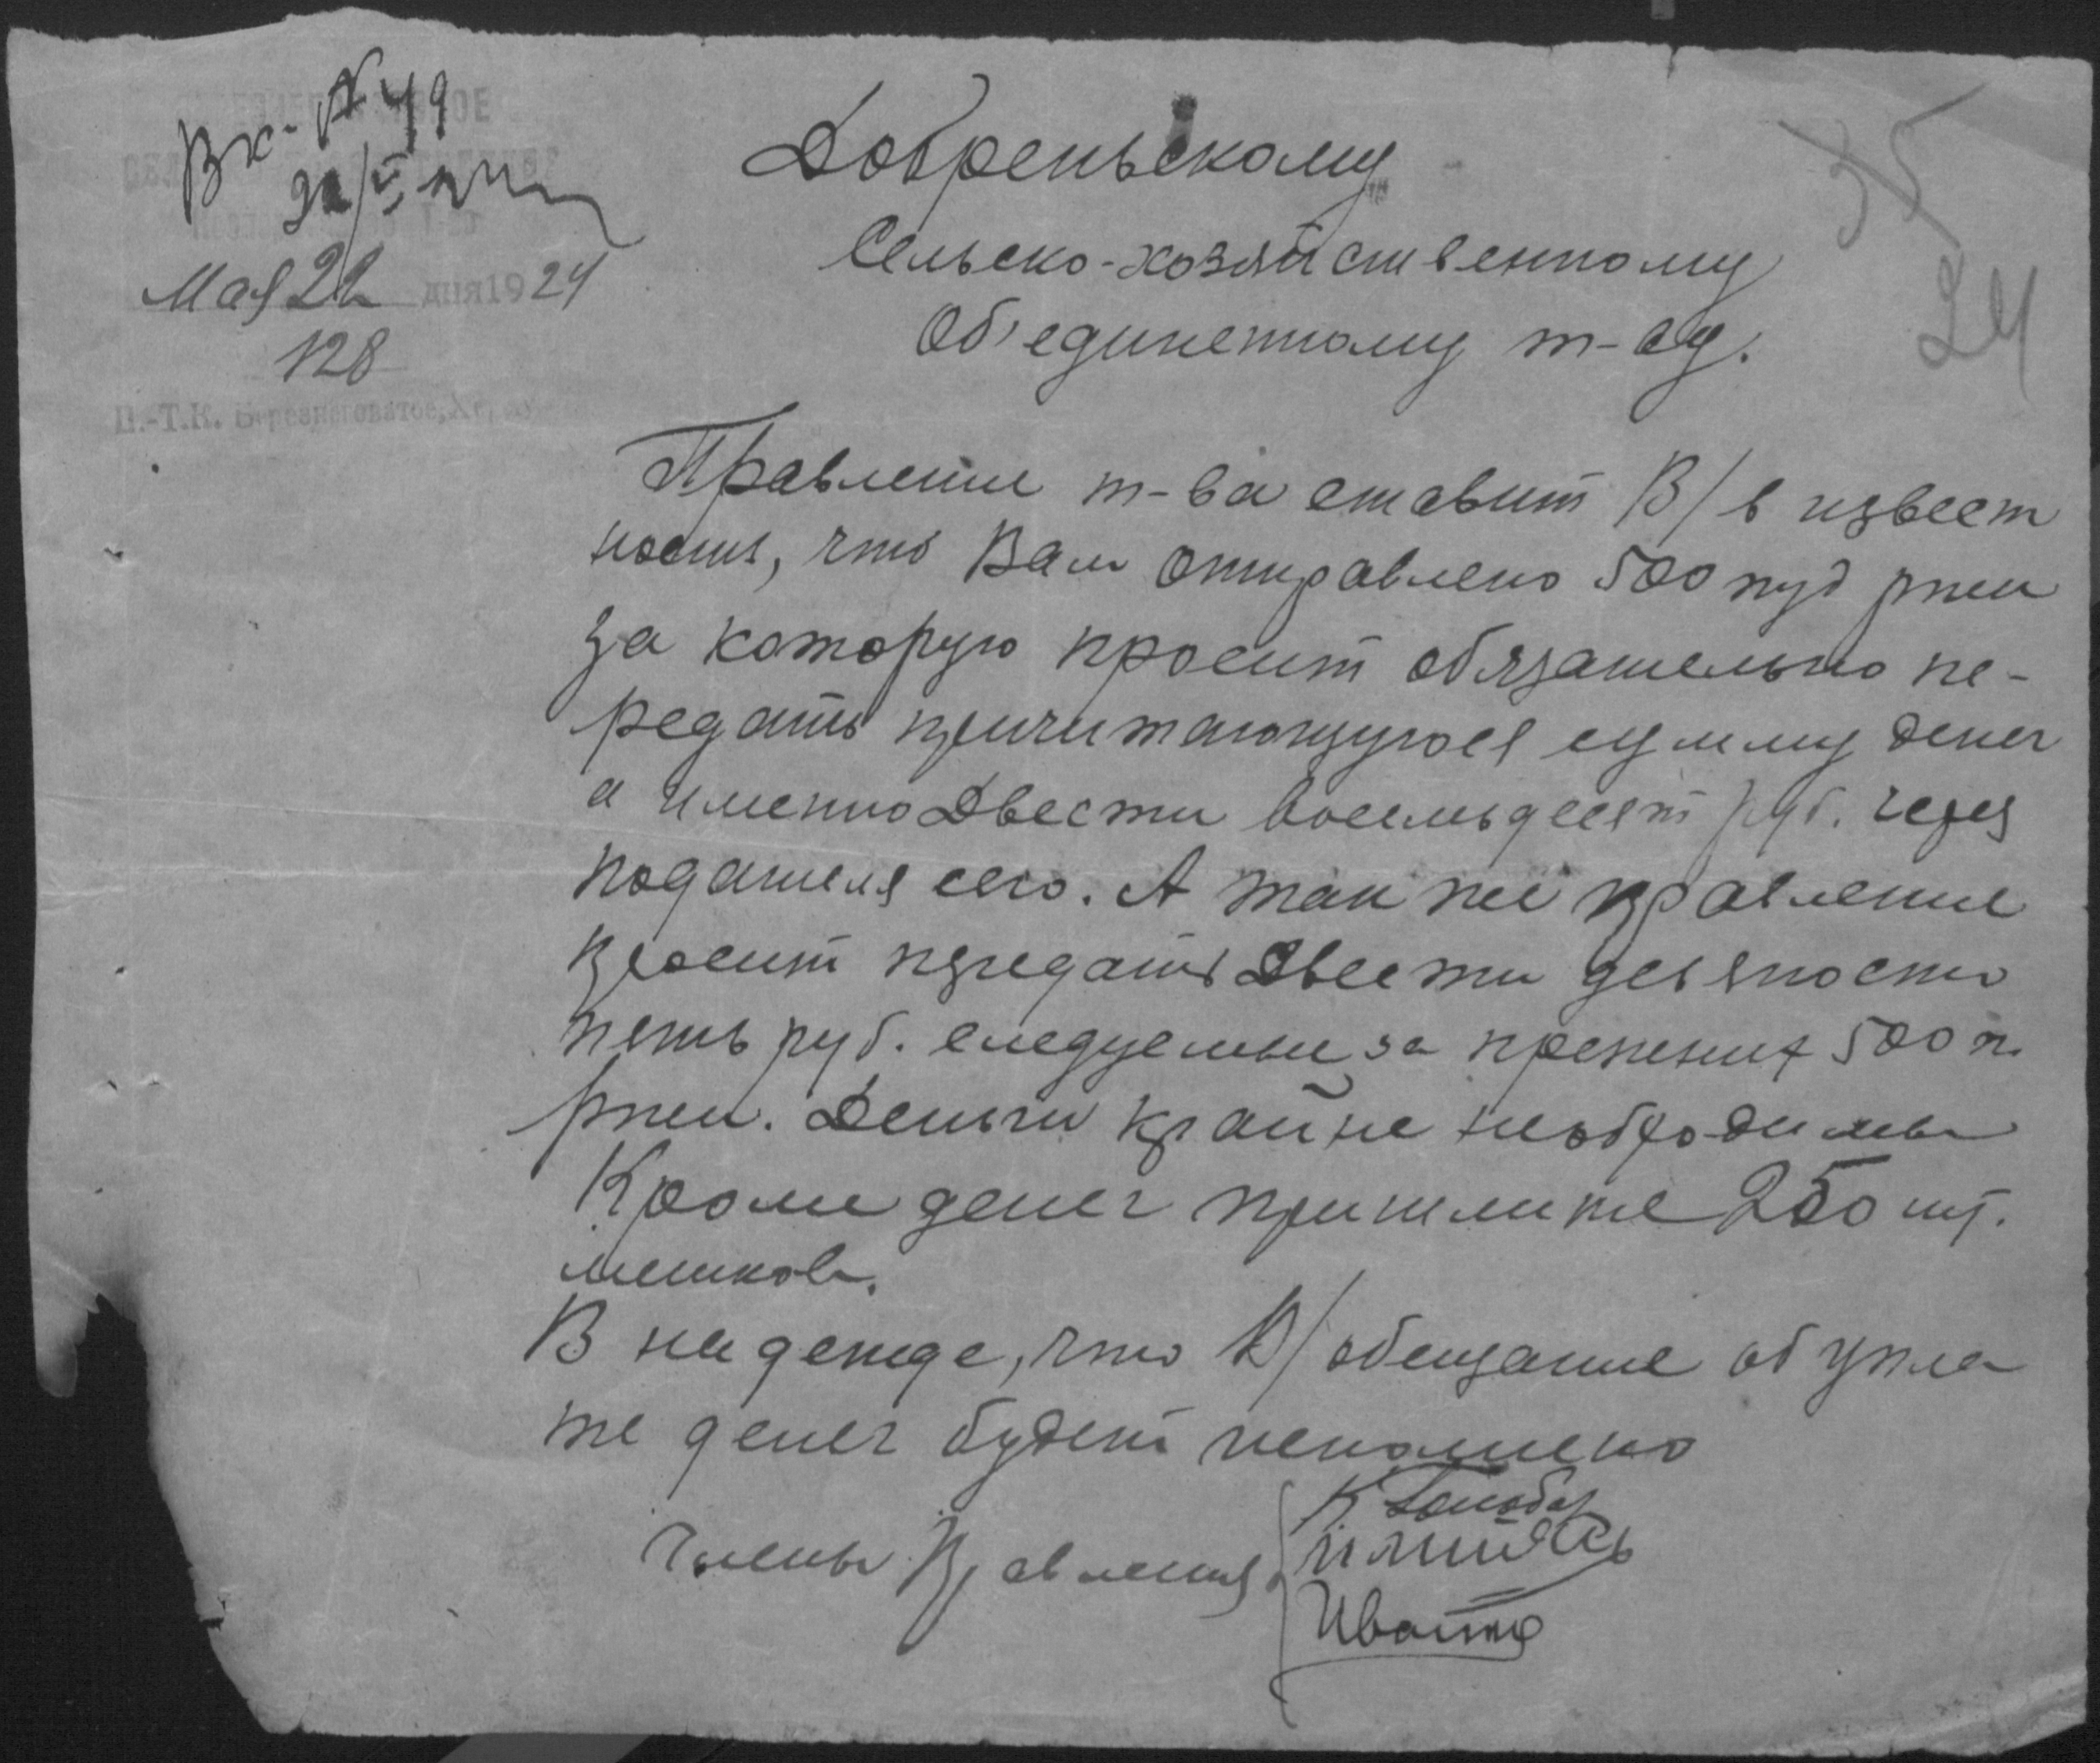 Вх. № 49
22/V 24
Мая 22 дня 1924
128
П.-Т.К. Березнеговатое, Хе
35
24
Добреньскому
Сельско-хозяйственному
Об'единенному т-ву.
Правление т-ва ставит В/ в извест
ность, что Вам отправлено 500 пуд ржи
за которую просит обязательно пе-
редать причитающуюся сумму денег
а именно Двести восемьдесят руб. через
подателя сего. А так же правление
просит передать Двести девяносто
пять руб. следуемые за прежних 500 п.
ржи. Деньги крайне необходимы
Кроме денег пришлите 250 шт.
мешков.
В надежде, что В/ обещание об упла
те денег будет исполнено
Члены Правления